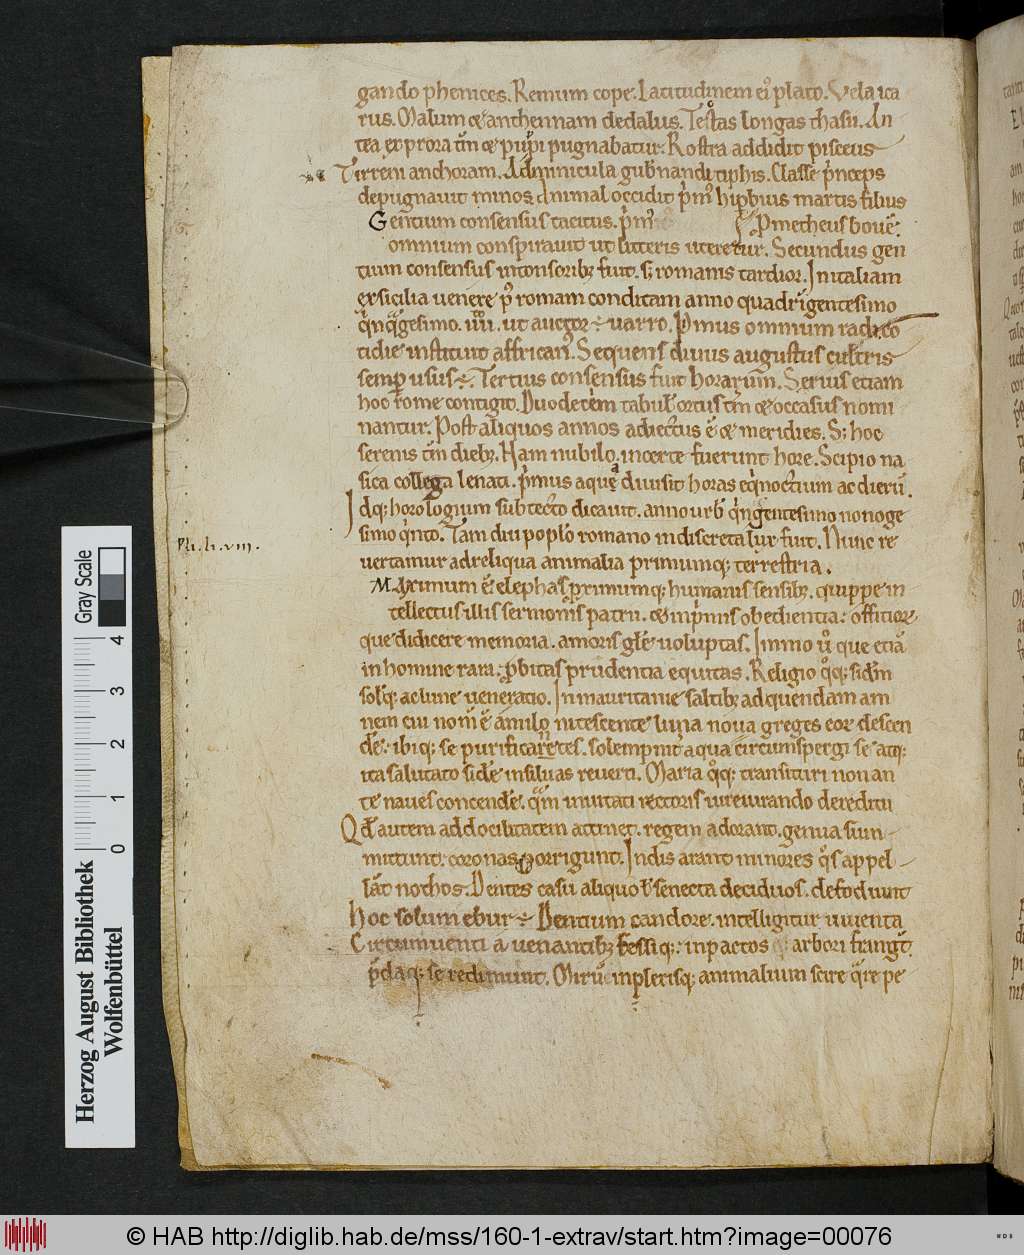 gando phenices. Remum cope. Latitudinem ei᷒ plato. Vela ica
rus. Malum & anthennam dedalus. Testas longas thasii. An
tea ex prora tm̄ & puppi pugnabatur. Rostra addidit pisceus
Tirreni anchoram. Adminicula gub̄nandi tiphis. Classe p̄nceps
depugnauit minos. Animal occidit p̄m᷒ hipbius martis filius
Gentium consensus tacitus. p̄m᷒ Pmetheus bouē.
omnium conspirauit ut litteris uteretur. Secundus gen
tium consensus in tonsorib; fuit. s; romanis tardior. In italiam
ex sicilia uenere p᷒ romam conditam anno quadringentesimo
q̇nq̈gesimo. iiii. ut auctor ÷ uarro. Pimus omnium radi co
tidie instituit affrican᷒. Sequens diuus augustus cultris
semp usus ÷. Tertius consensus fuit horarum̄. Serius etiam
hoc rome contigit. Duodecim tabul᷒ ortus tm̄ & occasus nomi
nantur. Post aliquos annos adiectus ē & meridies. S; hoc
serenis tm̄ dieb;. Nam nubilo incerte fuerunt hore. Scipio na
sica collega lenati. p̄mus aqua diuisit horas eq̇noctium ac dierū.
Idq; horologium sub tecto dicauit. anno urb᷒ q̇ngentesimo nonoge
simo q̇nto. Tam diu pop̄lo romano indiscreta lux fuit. Nunc re
uertamur ad reliqua animalia primumq; terrestria.
Pli. li. viii.
Maximum ē elephas primumq; humanis sensib;. quippe in
tellectus illis sermonis patrii. & inp̄mis obedientia. offitior
que didicere memoria. amoris gl̄e uoluptas. Immo u᷒ que etiā
in homine rara. p̄bitas prudentia equitas. Religio q̊q; sidm̄
solisq; ac lune ueneratio. In mauritanie saltib; ad quendam am
nem cui nom̄ ē amilo nitescente luna noua greges eor̄ descen
dē. ibiq; se purificantes. solempnit᷒ aqua circumspergi se atq;
ita salutato sidē in siluas reuerti. Maria q̊q; transituri non an
te naues concendē. q̈m inuitati rectoris iureiurando de reditu
Qd̄ autem ad docilitatem attinet. regem adorant. genua sum
mittunt. coronas porrigunt. Indis arant minores q̊s appel
lāt nothos. Dentes casu aliquo l᷒ senecta deciduos. defodiunt
Hoc solum ebur ÷. Dentium candore. intelligitur iuuenta
Circumuenti a uenantib; fessiq;. inpactos arbori frangt̄
p̄daq; se redimunt. Mirū in plerisq; animalium scire q̈re pe
Herzog August Bibliothek
Wolfenbüttel
0 1 2 3 4
Gray Scale
© HAB http://diglib.hab.de/mss/160-1-extrav/start.htm?image=00076